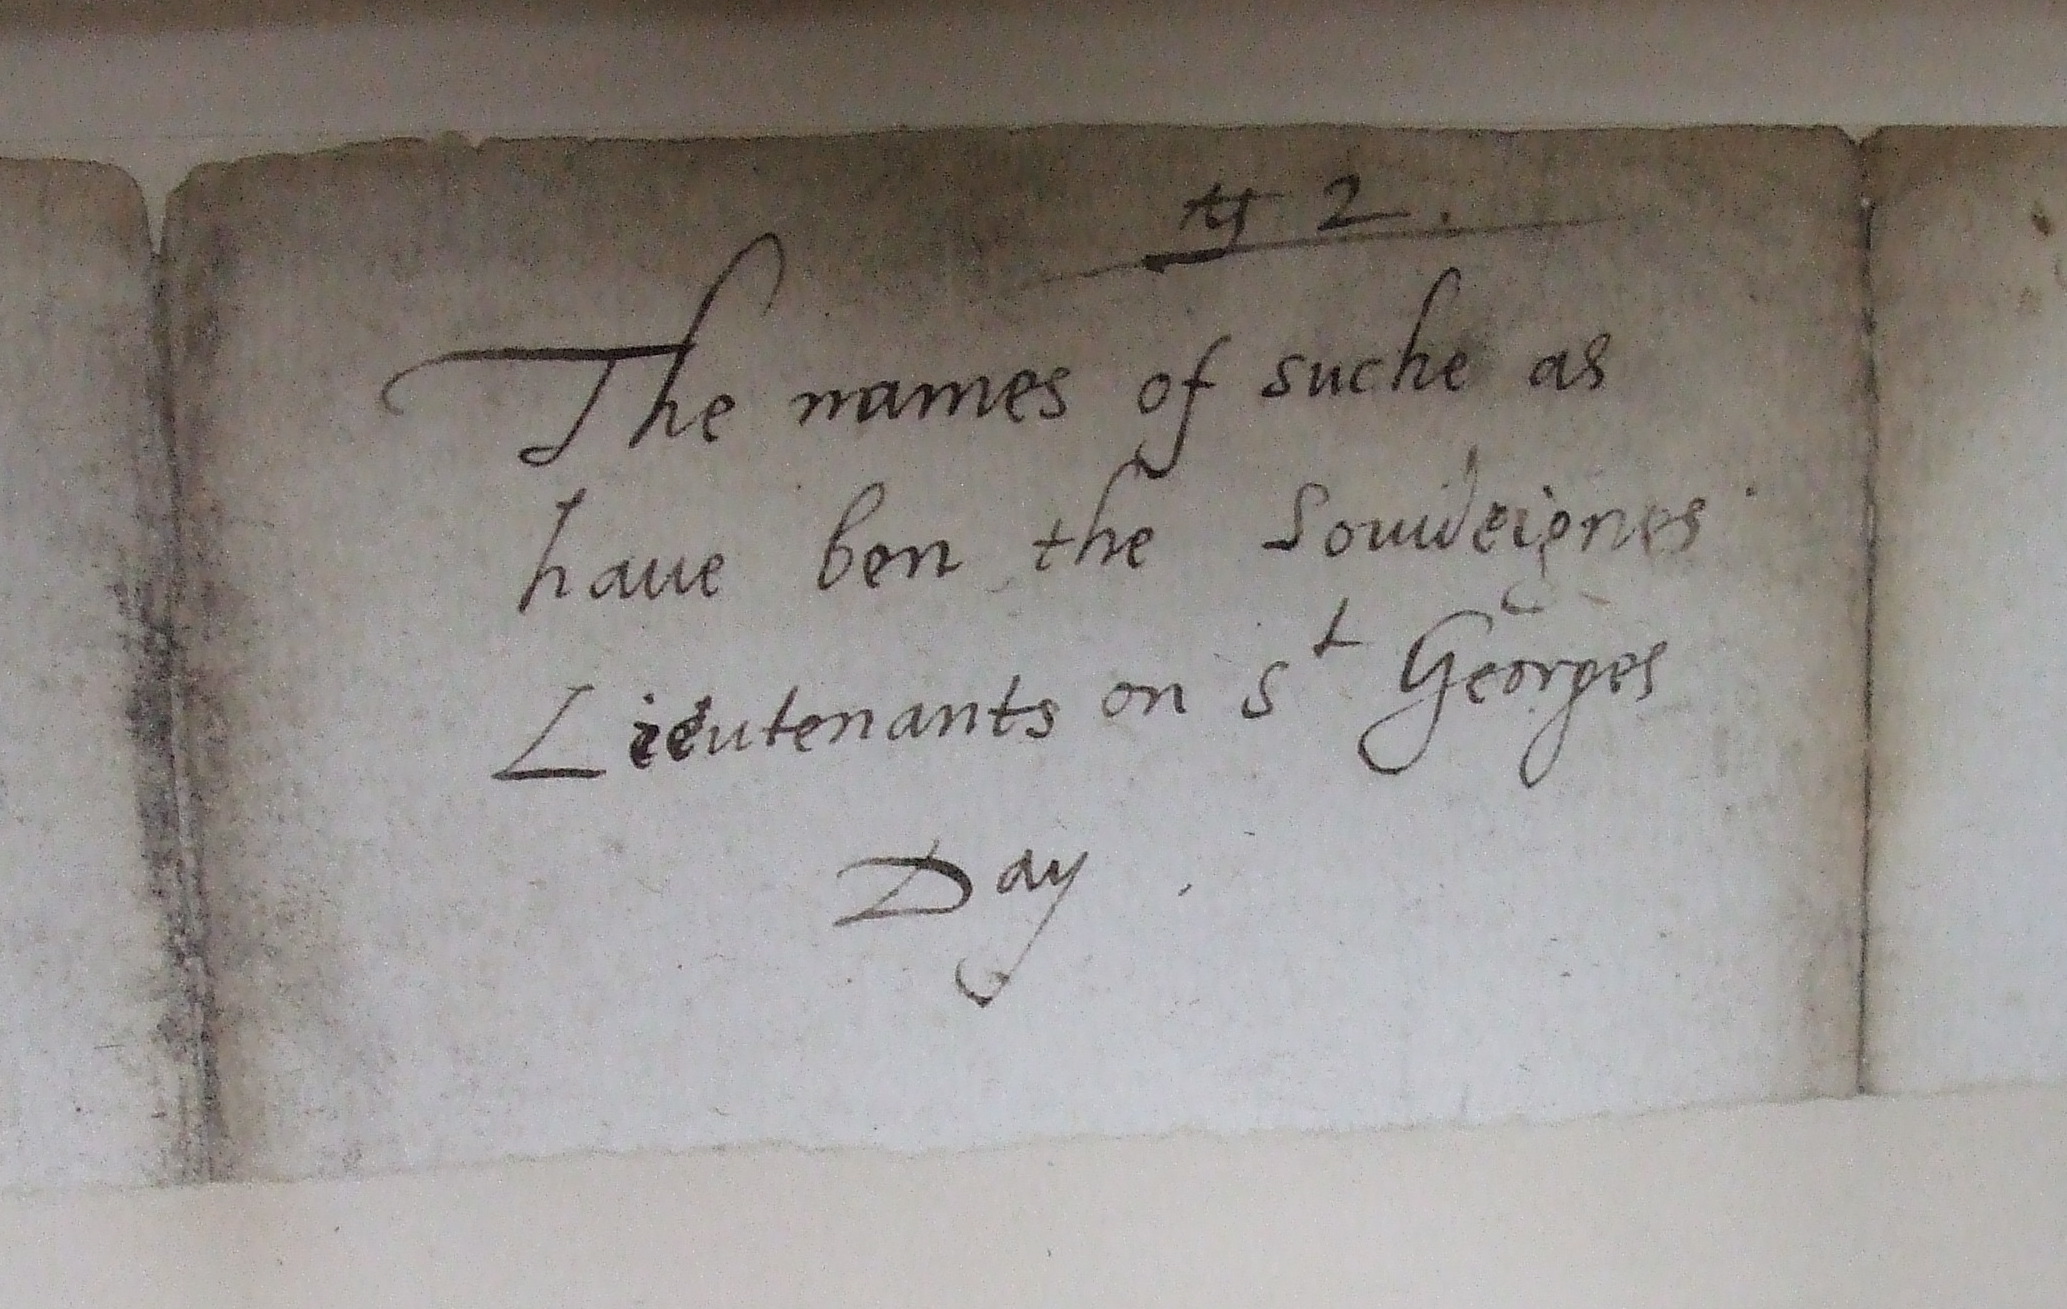 2.
The names of suche as
haue ben the Souu'eignes
Lieutenants on St Georges
Day.